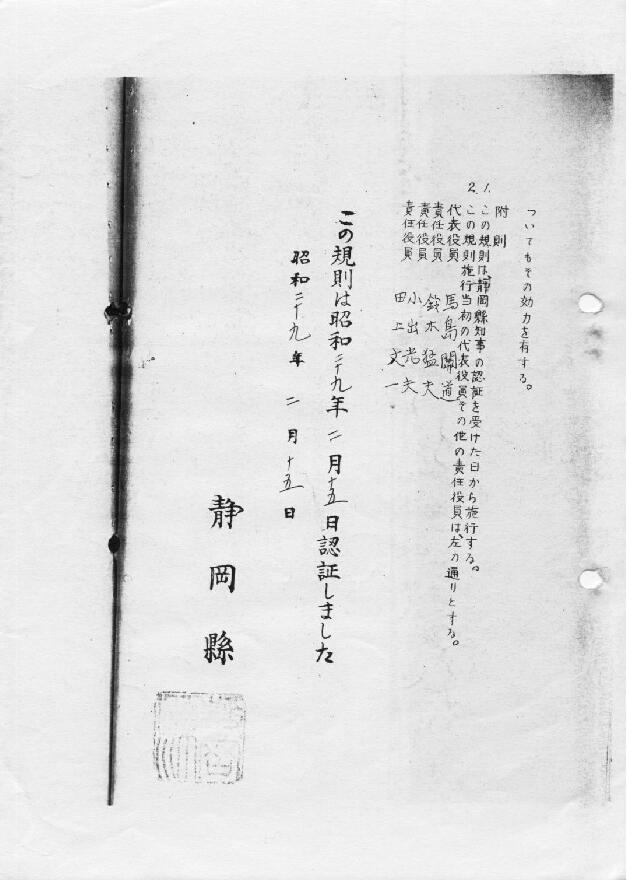 ついてもその効力を有する。
附則
1. この規則は、静岡縣知事の認証を受けた日から施行する。
2. この規則施行当初の代表役員、その他の責任役員は、左の通りとする。
代表役員 馬島開道
責任役員 鈴木猛夫
責任役員 小出光夫
責任役員 田上文一
この規則は昭和二十九年二月十五日認証しました
昭和二十九年二月十五日
静岡縣